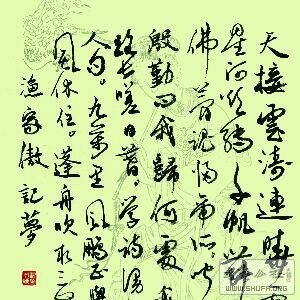 天接雲濤連曉
星河欲轉千帆舞
佛夢魂歸帝所。聞
殷勤問我歸何處。我
路長嗟日暮。學詩謾
人句。九萬里風鵬正舉
風休住。蓬舟吹取三
漁家傲記夢